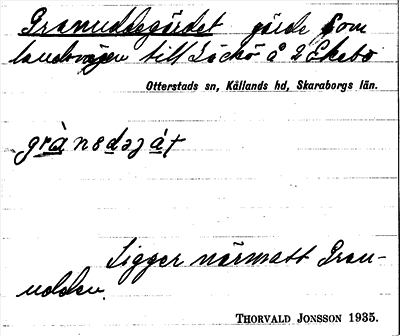 Granuddsgärdet gärde som
landsvägen till Läckö å 2 Ekebo
Otterstads sn, Kållands hd, Skaraborgs län.
Ligger närmast Gran-
udden.
THORVALD JONSSON 1935.